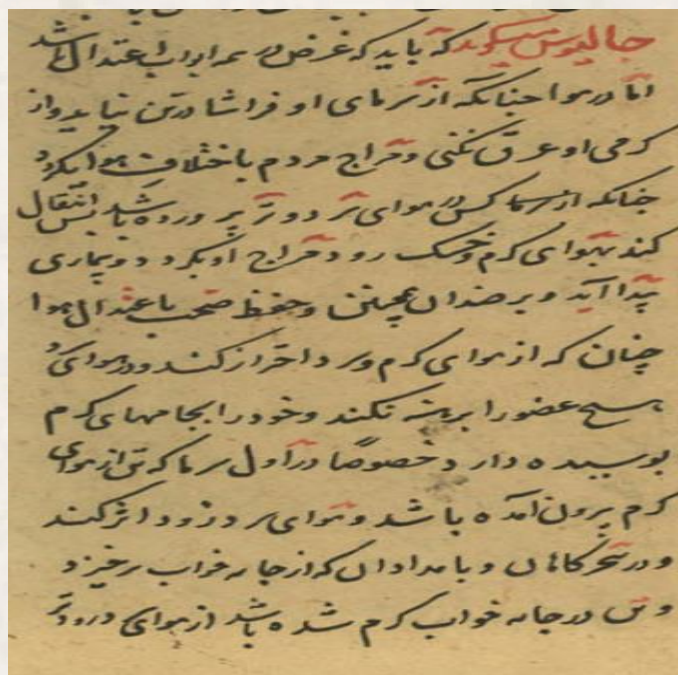 جالینوس میگوید که باید که غرض در همه ابواب اعتدال باشد
اما در هوا چنانکه از سرمای او فراشا در تن نیاید و از
کرمی او عرق نکنی و مزاج مردم باختلاف هوا بگردد
چنانکه از سما کس در هوای سرد و تر پرورده باشد پس انتقال
کند بهوای کرم و خشک رود مزاج او بگردد و بیماری
پیدا آید و بر ضد آن همچنین و حفظ صحت باعتدال هوا
چنان که از هوای کرم و سرد احتراز کند و در هوای
هیچ عضو را برهنه نکند و خود را بجامهای کرم
پوسیده دارد خصوصا در اول سرما که تن از هوای
کرم بیرون آمده باشد و هوای سرد زود اثر کند
و در سحرگاهان و بامدادان که از جامه خواب برخیزد
و تن در جامه خواب کرم شده باشد از هوای سرد زودتر